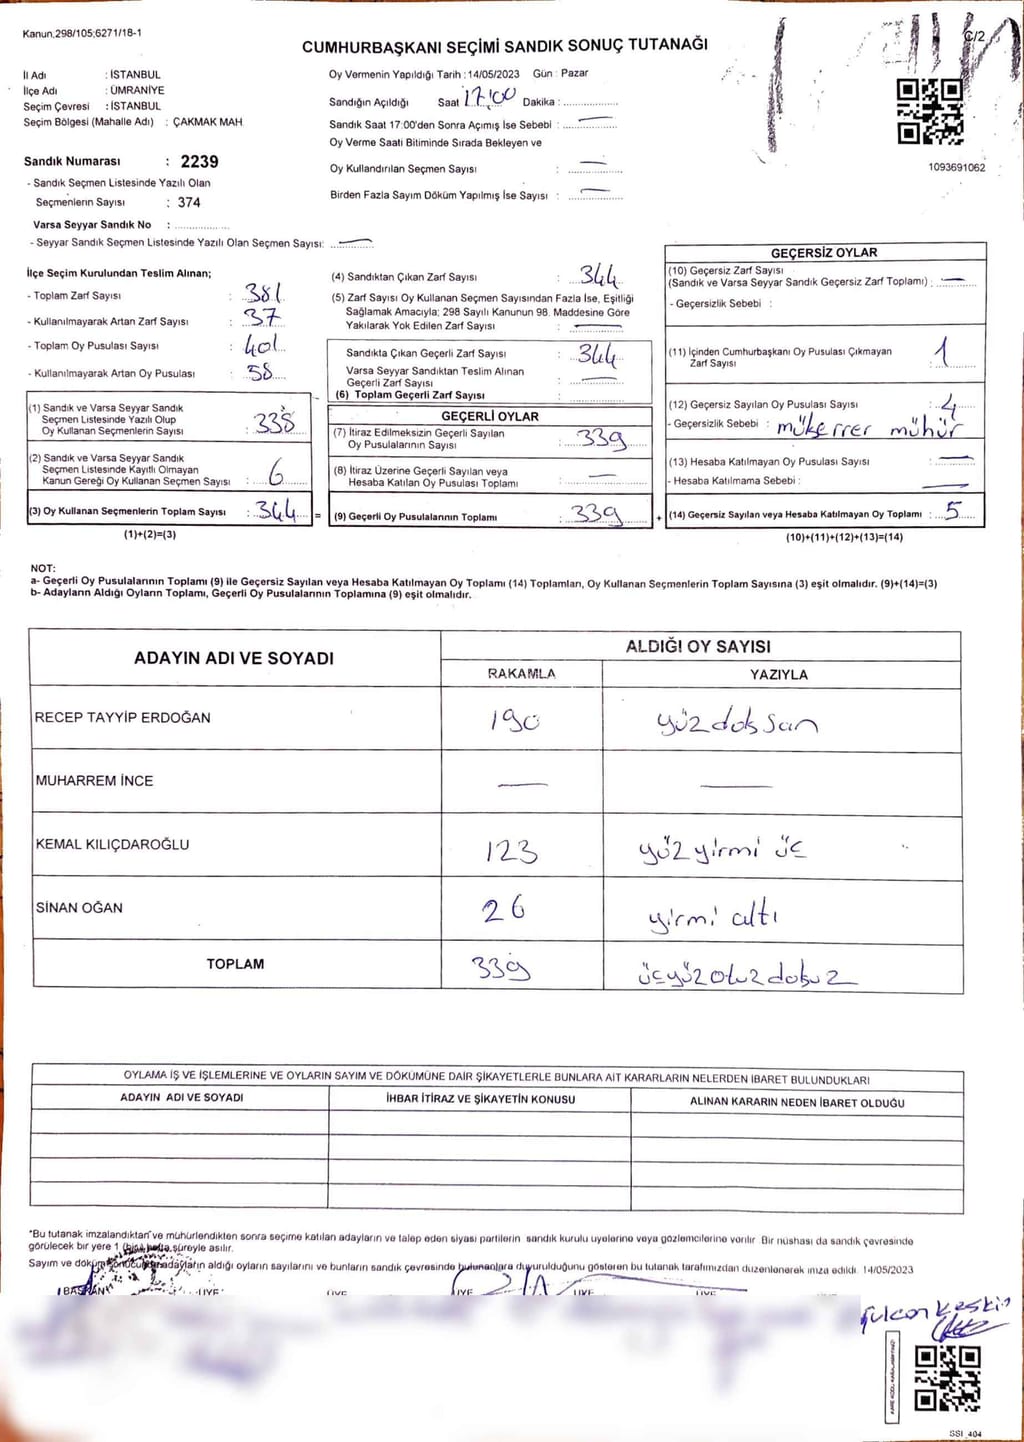 Kanun,298/105;6271/18-1
C/2
CUMHURBAŞKANI SEÇİMİ SANDIK SONUÇ TUTANAĞI
İl Adı : İSTANBUL
İlçe Adı : ÜMRANİYE
Seçim Çevresi : İSTANBUL
Seçim Bölgesi (Mahalle Adı) : ÇAKMAK MAH.
Sandık Numarası : 2239
- Sandık Seçmen Listesinde Yazılı Olan
Seçmenlerin Sayısı : 374
Varsa Seyyar Sandık No :
- Seyyar Sandık Seçmen Listesinde Yazılı Olan Seçmen Sayısı: —
Oy Vermenin Yapıldığı Tarih :14/05/2023 Gün : Pazar
Sandığın Açıldığı Saat 17:00 Dakika :
Sandık Saat 17:00'den Sonra Açımış İse Sebebi : —
Oy Verme Saati Bitiminde Sırada Bekleyen ve
Oy Kullandırılan Seçmen Sayısı : —
Birden Fazla Sayım Döküm Yapılmış İse Sayısı : —
1093691062
İlçe Seçim Kurulundan Teslim Alınan;
- Toplam Zarf Sayısı : 381
- Kullanılmayarak Artan Zarf Sayısı : 37
- Toplam Oy Pusulası Sayısı : 401
- Kullanılmayarak Artan Oy Pusulası : 58
(1) Sandık ve Varsa Seyyar Sandık
Seçmen Listesinde Yazılı Olup
Oy Kullanan Seçmenlerin Sayısı : 338
(2) Sandık ve Varsa Seyyar Sandık
Seçmen Listesinde Kayıtlı Olmayan
Kanun Gereği Oy Kullanan Seçmen Sayısı : 6
(3) Oy Kullanan Seçmenlerin Toplam Sayısı : 344 =
(1)+(2)=(3)
(4) Sandıktan Çıkan Zarf Sayısı : 344
(5) Zarf Sayısı Oy Kullanan Seçmen Sayısından Fazla İse, Eşitliği
Sağlamak Amacıyla; 298 Sayılı Kanunun 98. Maddesine Göre
Yakılarak Yok Edilen Zarf Sayısı : —
Sandıkta Çıkan Geçerli Zarf Sayısı : 344
Varsa Seyyar Sandıktan Teslim Alınan
Geçerli Zarf Sayısı : —
(6) Toplam Geçerli Zarf Sayısı :
GEÇERLİ OYLAR
(7) İtiraz Edilmeksizin Geçerli Sayılan
Oy Pusulalarının Sayısı : 339
(8) İtiraz Üzerine Geçerli Sayılan veya
Hesaba Katılan Oy Pusulası Toplamı : —
(9) Geçerli Oy Pusulalarının Toplamı : 339 +
GEÇERSİZ OYLAR
(10) Geçersiz Zarf Sayısı
(Sandık ve Varsa Seyyar Sandık Geçersiz Zarf Toplamı) : —
- Geçersizlik Sebebi :
(11) İçinden Cumhurbaşkanı Oy Pusulası Çıkmayan
Zarf Sayısı : 1
(12) Geçersiz Sayılan Oy Pusulası Sayısı : 4
- Geçersizlik Sebebi : mükerrer mühür
(13) Hesaba Katılmayan Oy Pusulası Sayısı : —
- Hesaba Katılmama Sebebi : —
(14) Geçersiz Sayılan veya Hesaba Katılmayan Oy Toplamı : 5
(10)+(11)+(12)+(13)=(14)
NOT:
a- Geçerli Oy Pusulalarının Toplamı (9) ile Geçersiz Sayılan veya Hesaba Katılmayan Oy Toplamı (14) Toplamları, Oy Kullanan Seçmenlerin Toplam Sayısına (3) eşit olmalıdır. (9)+(14)=(3)
b- Adayların Aldığı Oyların Toplamı, Geçerli Oy Pusulalarının Toplamına (9) eşit olmalıdır.
ADAYIN ADI VE SOYADI ALDIĞI OY SAYISI
RAKAMLA YAZIYLA
RECEP TAYYİP ERDOĞAN 190 yüz doksan
MUHARREM İNCE — —
KEMAL KILIÇDAROĞLU 123 yüz yirmi üç
SİNAN OĞAN 26 yirmi altı
TOPLAM 339 üçyüz otuz dokuz
OYLAMA İŞ VE İŞLEMLERİNE VE OYLARIN SAYIM VE DÖKÜMÜNE DAİR ŞİKAYETLERLE BUNLARA AİT KARARLARIN NELERDEN İBARET BULUNDUKLARI
ADAYIN ADI VE SOYADI İHBAR İTİRAZ VE ŞİKAYETİN KONUSU ALINAN KARARIN NEDEN İBARET OLDUĞU
*Bu tutanak imzalandıktan ve mühürlendikten sonra seçime katılan adayların ve talep eden siyasi partilerin sandık kurulu üyelerine veya gözlemcilerine verilir. Bir nüshası da sandık çevresinde
görülecek bir yere 1 (bir) hafta süreyle asılır.
Sayım ve döküm sonucu adayların aldığı oyların sayılarını ve bunların sandık çevresinde bulunanlara duyurulduğunu gösteren bu tutanak tarafımızdan düzenlenerek imza edildi. 14/05/2023
BAŞKAN ÜYE ÜYE ÜYE ÜYE ÜYE
Keskin
SSI_404